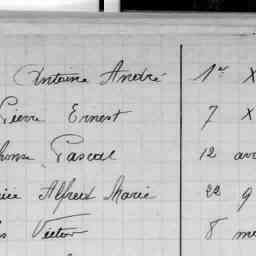 Antoine André 1er X
Pierre Ernest 7 X
Pascal 12 avr
Alfred Marie 22 9
Victor 8 me